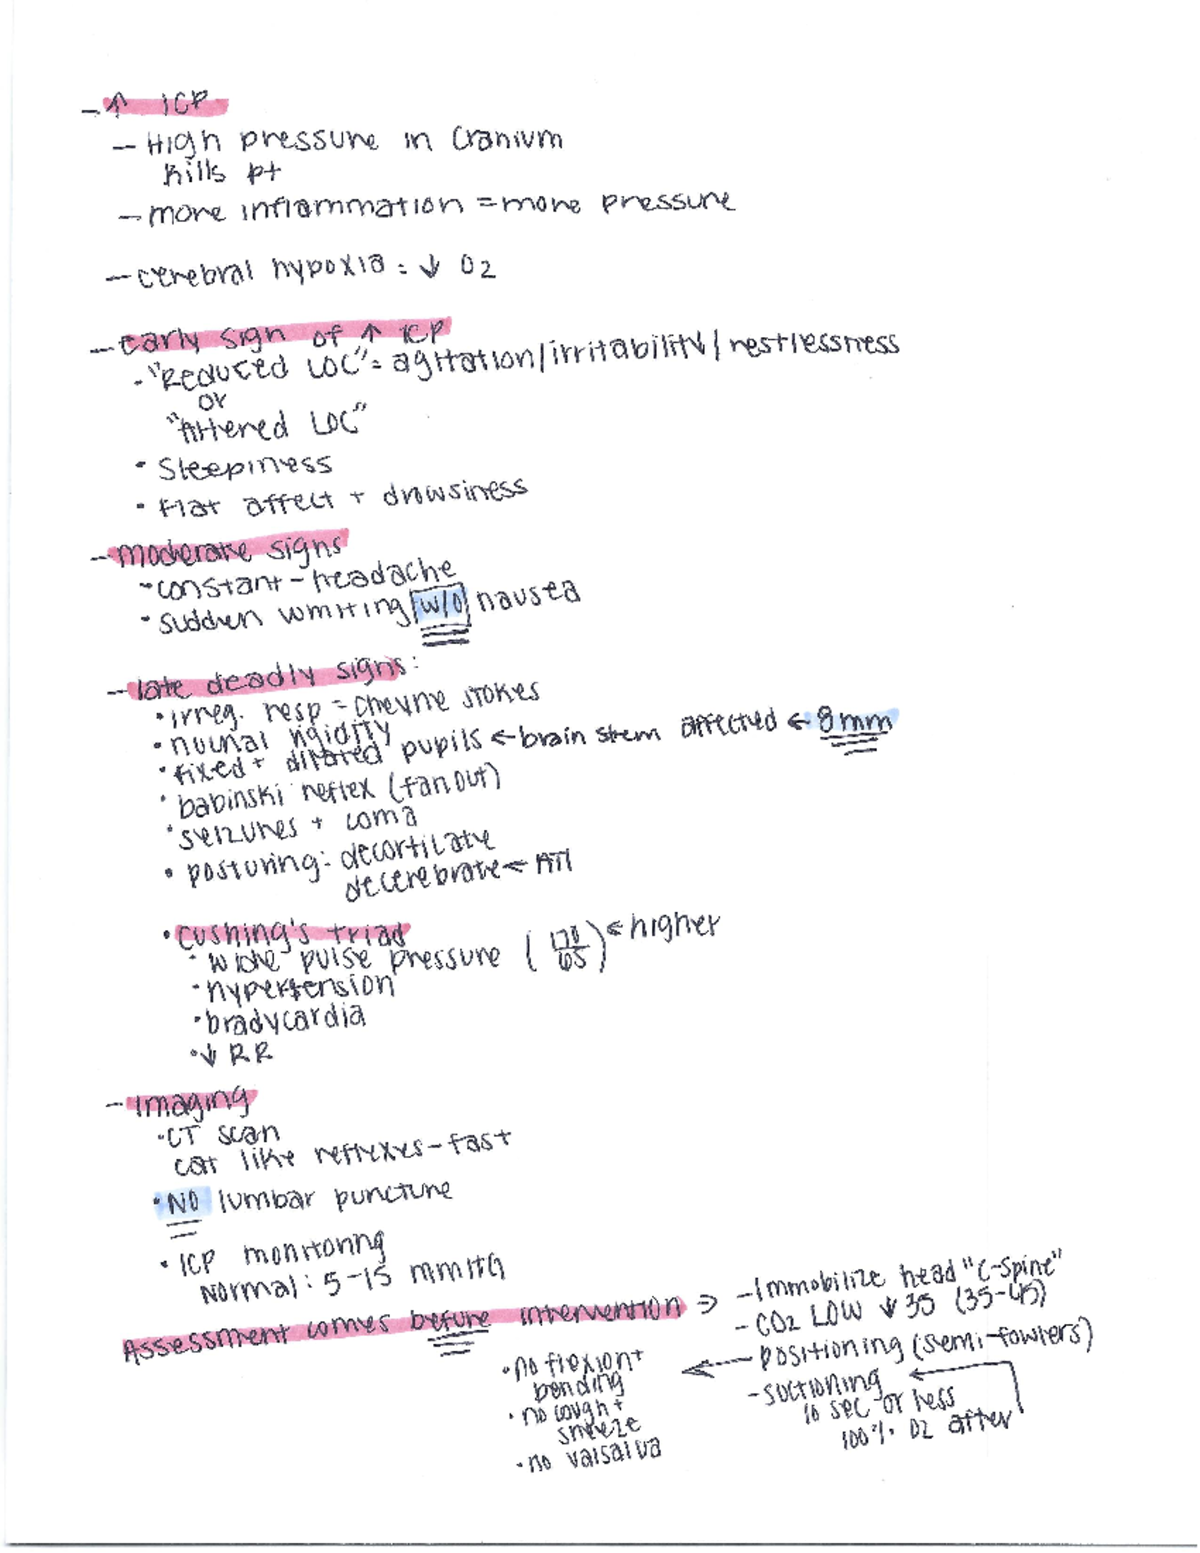 - ↑ ICP
- High pressure in cranium
kills pt
- more inflammation = more pressure
- cerebral hypoxia: ↓ O2
- Early sign of ↑ ICP
• "Reduced LOC" = agitation/irritability/restlessness
or
"Altered LOC"
• sleepiness
• Flat affect + drowsiness
- moderate signs
• constant - headache
• sudden vomiting w/o nausea
- late deadly signs:
• irreg. resp = Cheyne stokes
• nuchal rigidity
• fixed + dilated pupils ← brain stem affected ← 8mm
• babinski reflex (fan out)
• seizures + coma
• posturing: decorticate
decerebrate ← ATI
• Cushing's triad
• wide pulse pressure (170/65) ← higher
• hypertension
• bradycardia
• ↓ RR
- Imaging
• CT scan
cat like reflexes - fast
• NO lumbar puncture
• ICP monitoring
Normal: 5-15 mmHG
Assessment comes before intervention ⇒
- Immobilize head "C-Spine"
- CO2 LOW ↓ 35 (35-45)
- positioning (semi-fowlers)
- suctioning
10 sec or less
100% O2 after
• no flexion +
bending
• no cough +
sneeze
• no valsalva